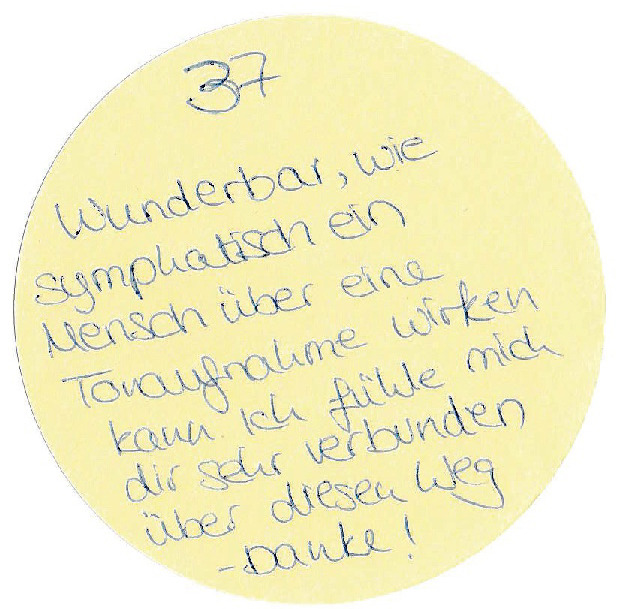 37
Wunderbar, wie
symphatisch ein
Mensch über eine
Tonaufnahme wirken
kann. Ich fühle mich
dir sehr verbunden
über diesen Weg
-Danke!